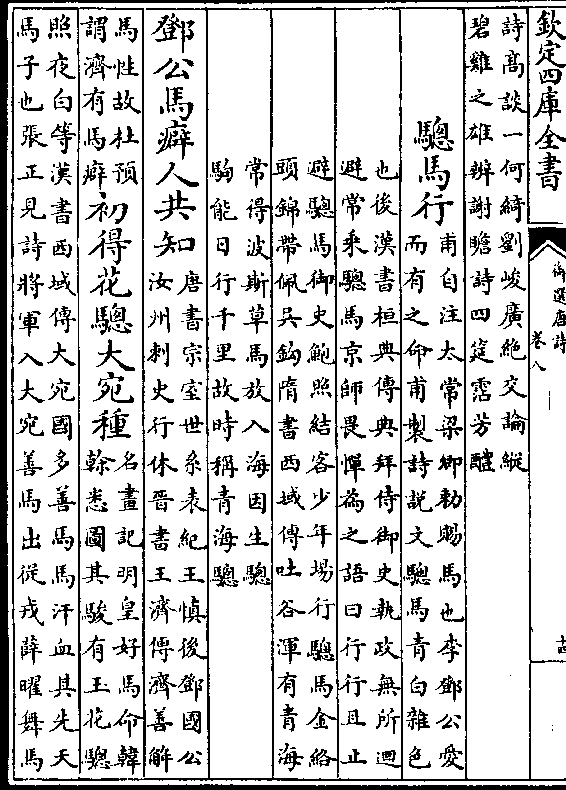 欽定四庫全書
御選唐詩
卷八
十四
詩高談一何綺劉峻廣絶交論縱
碧雞之雄辨謝瞻詩四筵霑芳醴
驄馬行
甫自注太常梁卿勅賜馬也李鄧公愛
而有之命甫製詩説文驄馬青白雜色
也後漢書桓典傳典拜侍御史執政無所迴
避常乘驄馬京師畏憚為之語曰行行且止
避驄馬御史鮑照結客少年場行驄馬金絡
頭錦帶佩吳鈎隋書西域傳吐谷渾有青海
常得波斯草馬放入海因生驄
駒能日行千里故時稱青海驄
鄧公馬癖人共知
唐書宗室世系表紀王慎後鄧國公
汝州刺史行休晉書王濟傳濟善解
馬性故杜預
謂濟有馬癖
初得花驄大宛種
名畫記明皇好馬命韓
幹悉圖其駿有玉花驄
照夜白等漢書西域傳大宛國多善馬馬汗血其先天
馬子也張正見詩將軍入大宛善馬出從戎薛曜舞馬